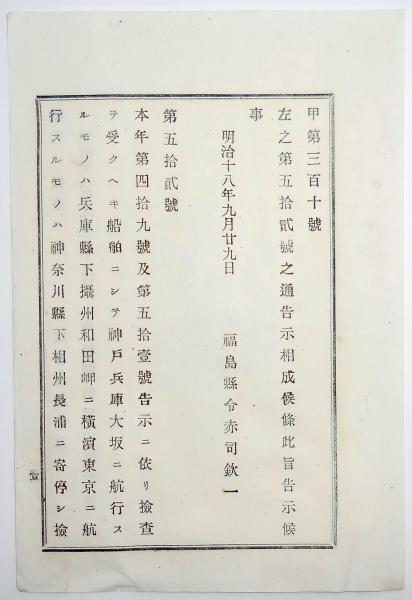 甲第三百十號
左之第五拾貳號之通告示相成候條此旨告示候
事
明治十八年九月廿九日 福島縣令赤司欽一
第五拾貳號
本年第四拾九號及第五拾壹號告示ニ依リ撿查
ヲ受クヘキ船舶ニシテ神戸兵庫大坂ニ航行ス
ルモノハ兵庫縣下攝州和田岬ニ橫濱東京ニ航
行スルモノハ神奈川縣下相州長浦ニ寄停シ撿
壹